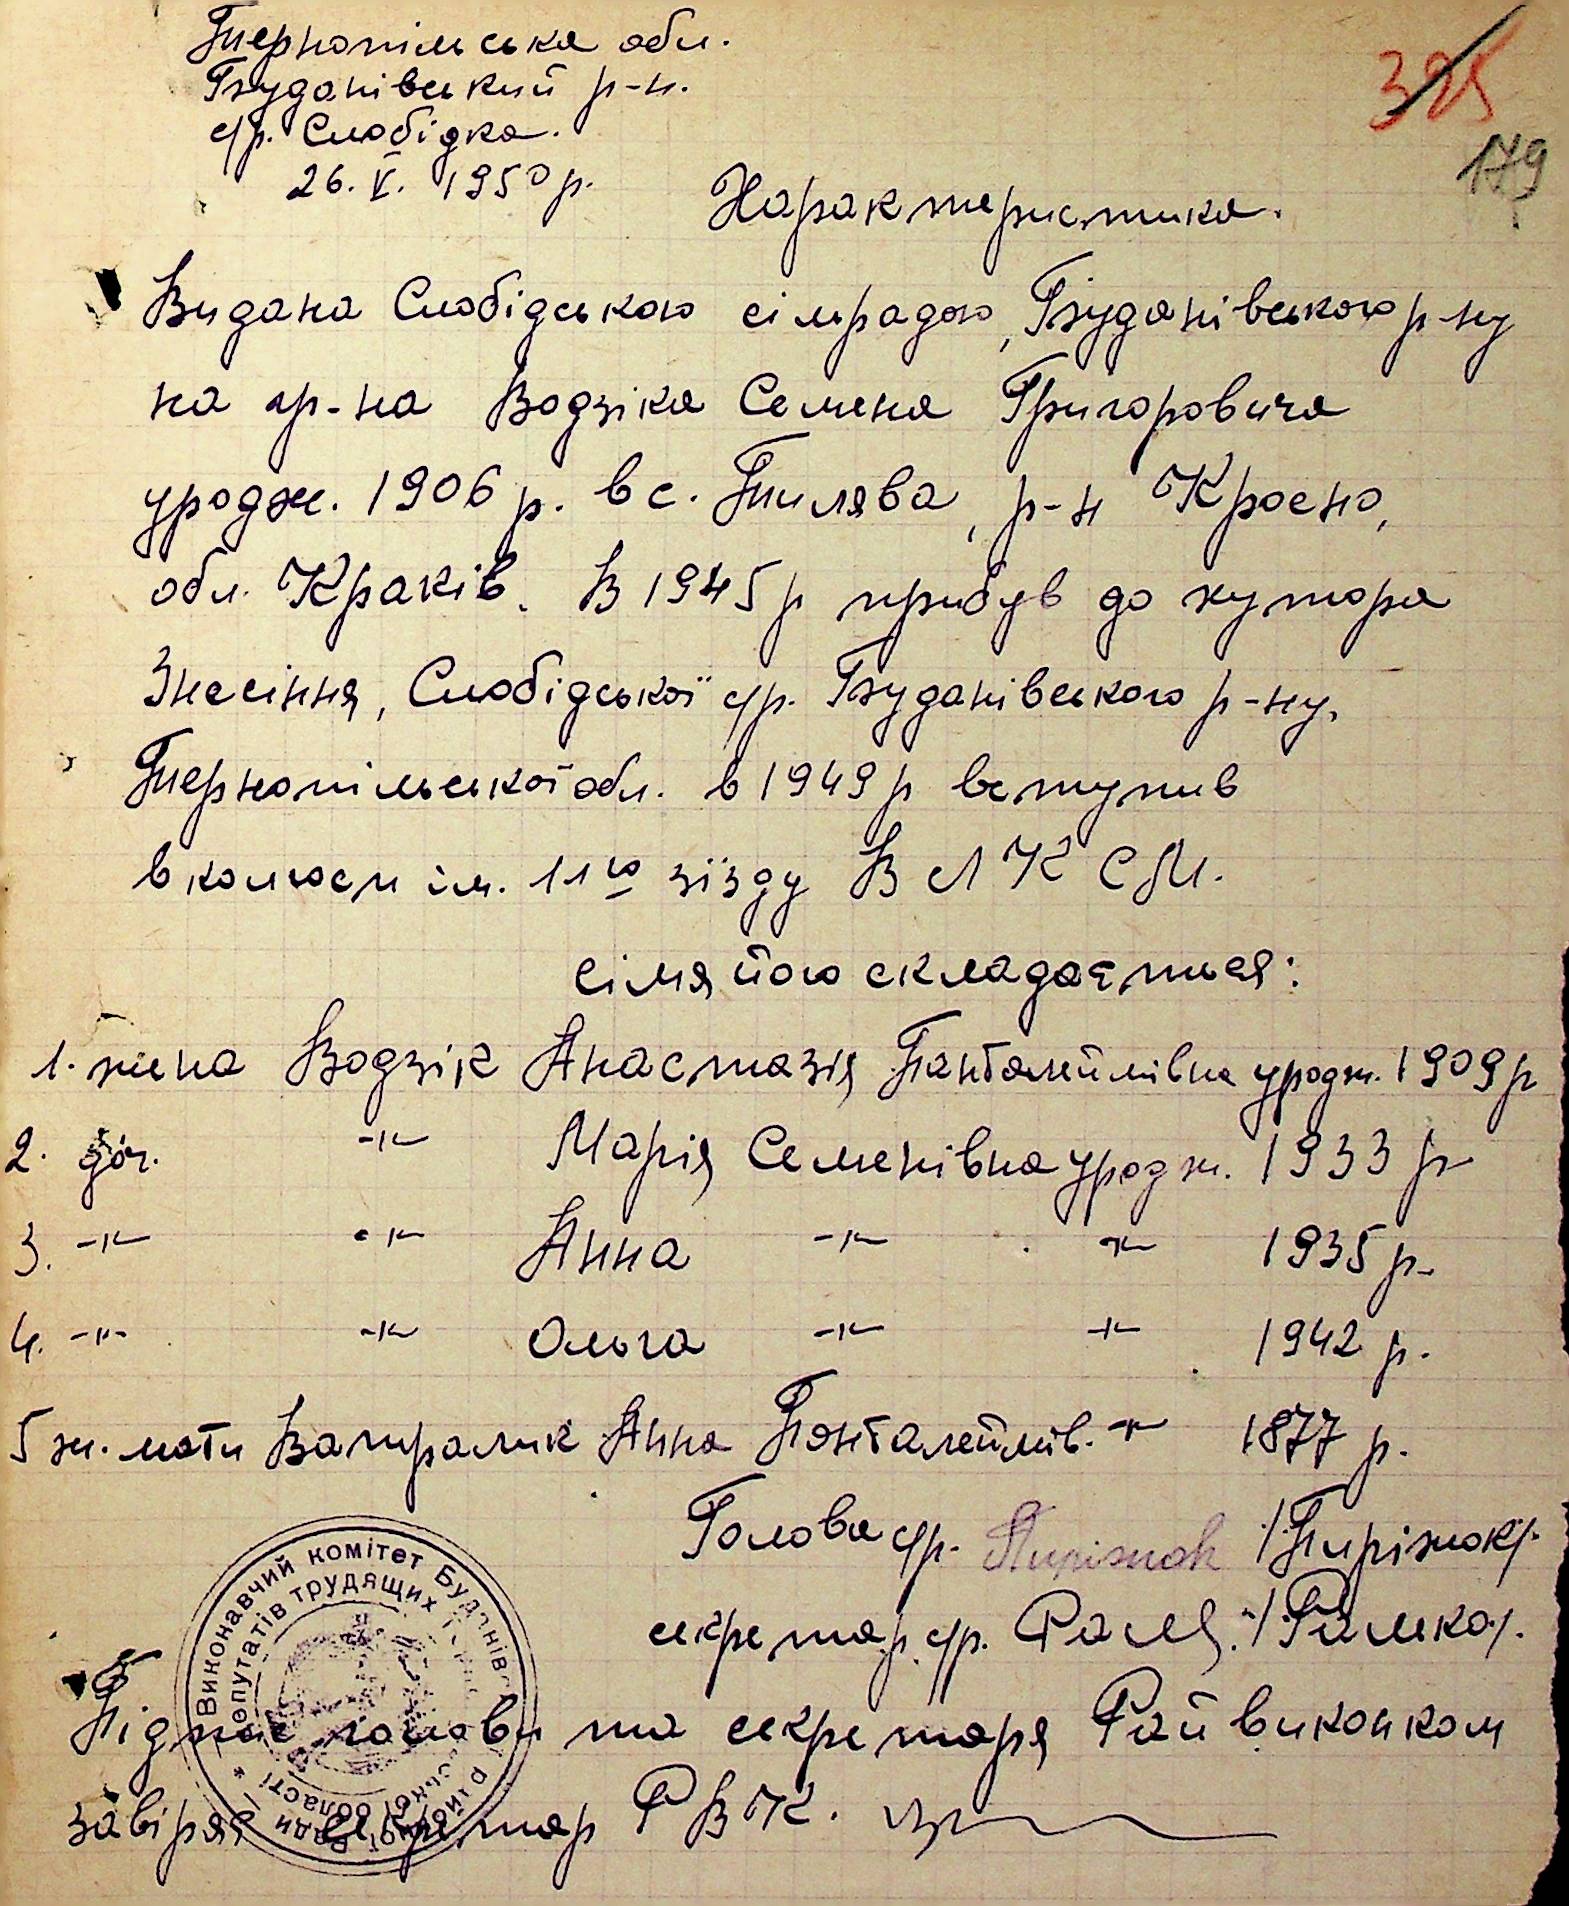 Тернопільська обл.
Буданівський р-н.
с/р. Слобідка.
26. V. 1950 р.
325
179
Характеристика.
Видана Слобідською сільрадою, Буданівського р-ну
на гр-на Водзіка Семена Григоровича
уродж. 1906 р. в с. Тилява, р-н Кросно,
обл. Краків. В 1945 р прибув до хутора
Знесіння, Слобідської с/р. Буданівського р-ну,
Тернопільської обл. в 1949 р вступив
в колгосп ім. 11го зїзду ВЛКСМ.
сімя його складається:
1. жена Водзік Анастазія Панталеймівна уродж. 1909 р
2. доч. -"- Марія Семенівна уродж. 1933 р
3. -"- -"- Анна -"- -"- 1935 р.
4. -"- -"- Ольга -"- -"- 1942 р.
5 ж. мати Анна Панталеймів. -"- 1877 р.
Голова с/р. Пиріжок /Пиріжок/.
секретар с/р. /Рамка/.
Підпис голови та секретаря Райвиконком
завіряє секретар РВК.
Виконавчий комітет Буданівської районної Ради
депутатів трудящих Тернопільської області